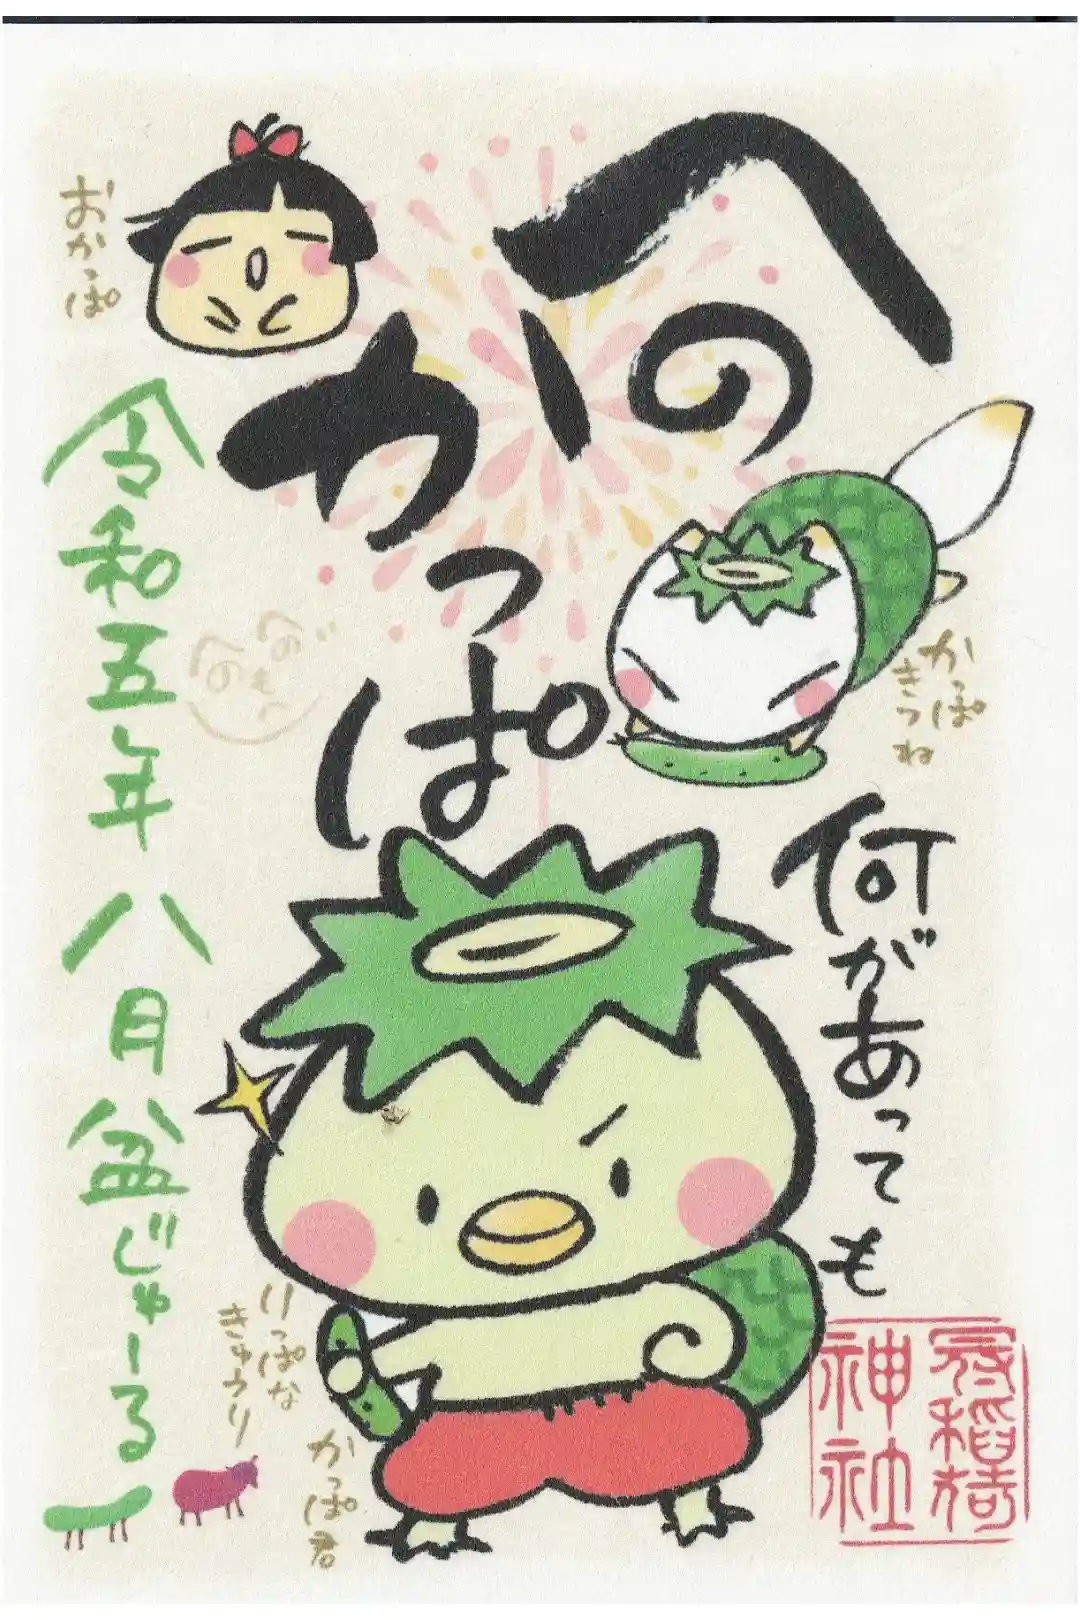 へのかっぱ
何があっても
おかっぱ
かっぱ
きつね
令和五年八月盆じゃーる
りっぱな
きゅうり
かっぱ君
神社